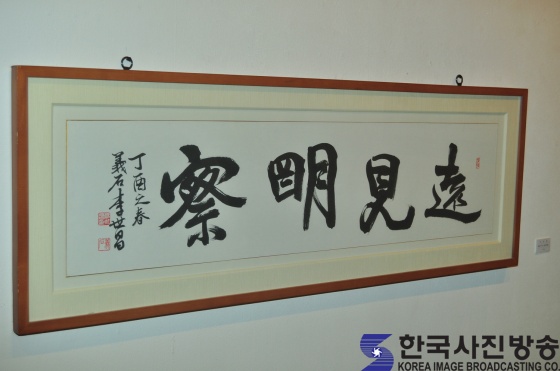 遠見明察
丁酉之春
義石李世昌
한국사진방송
KOREA IMAGE BROADCASTING CO